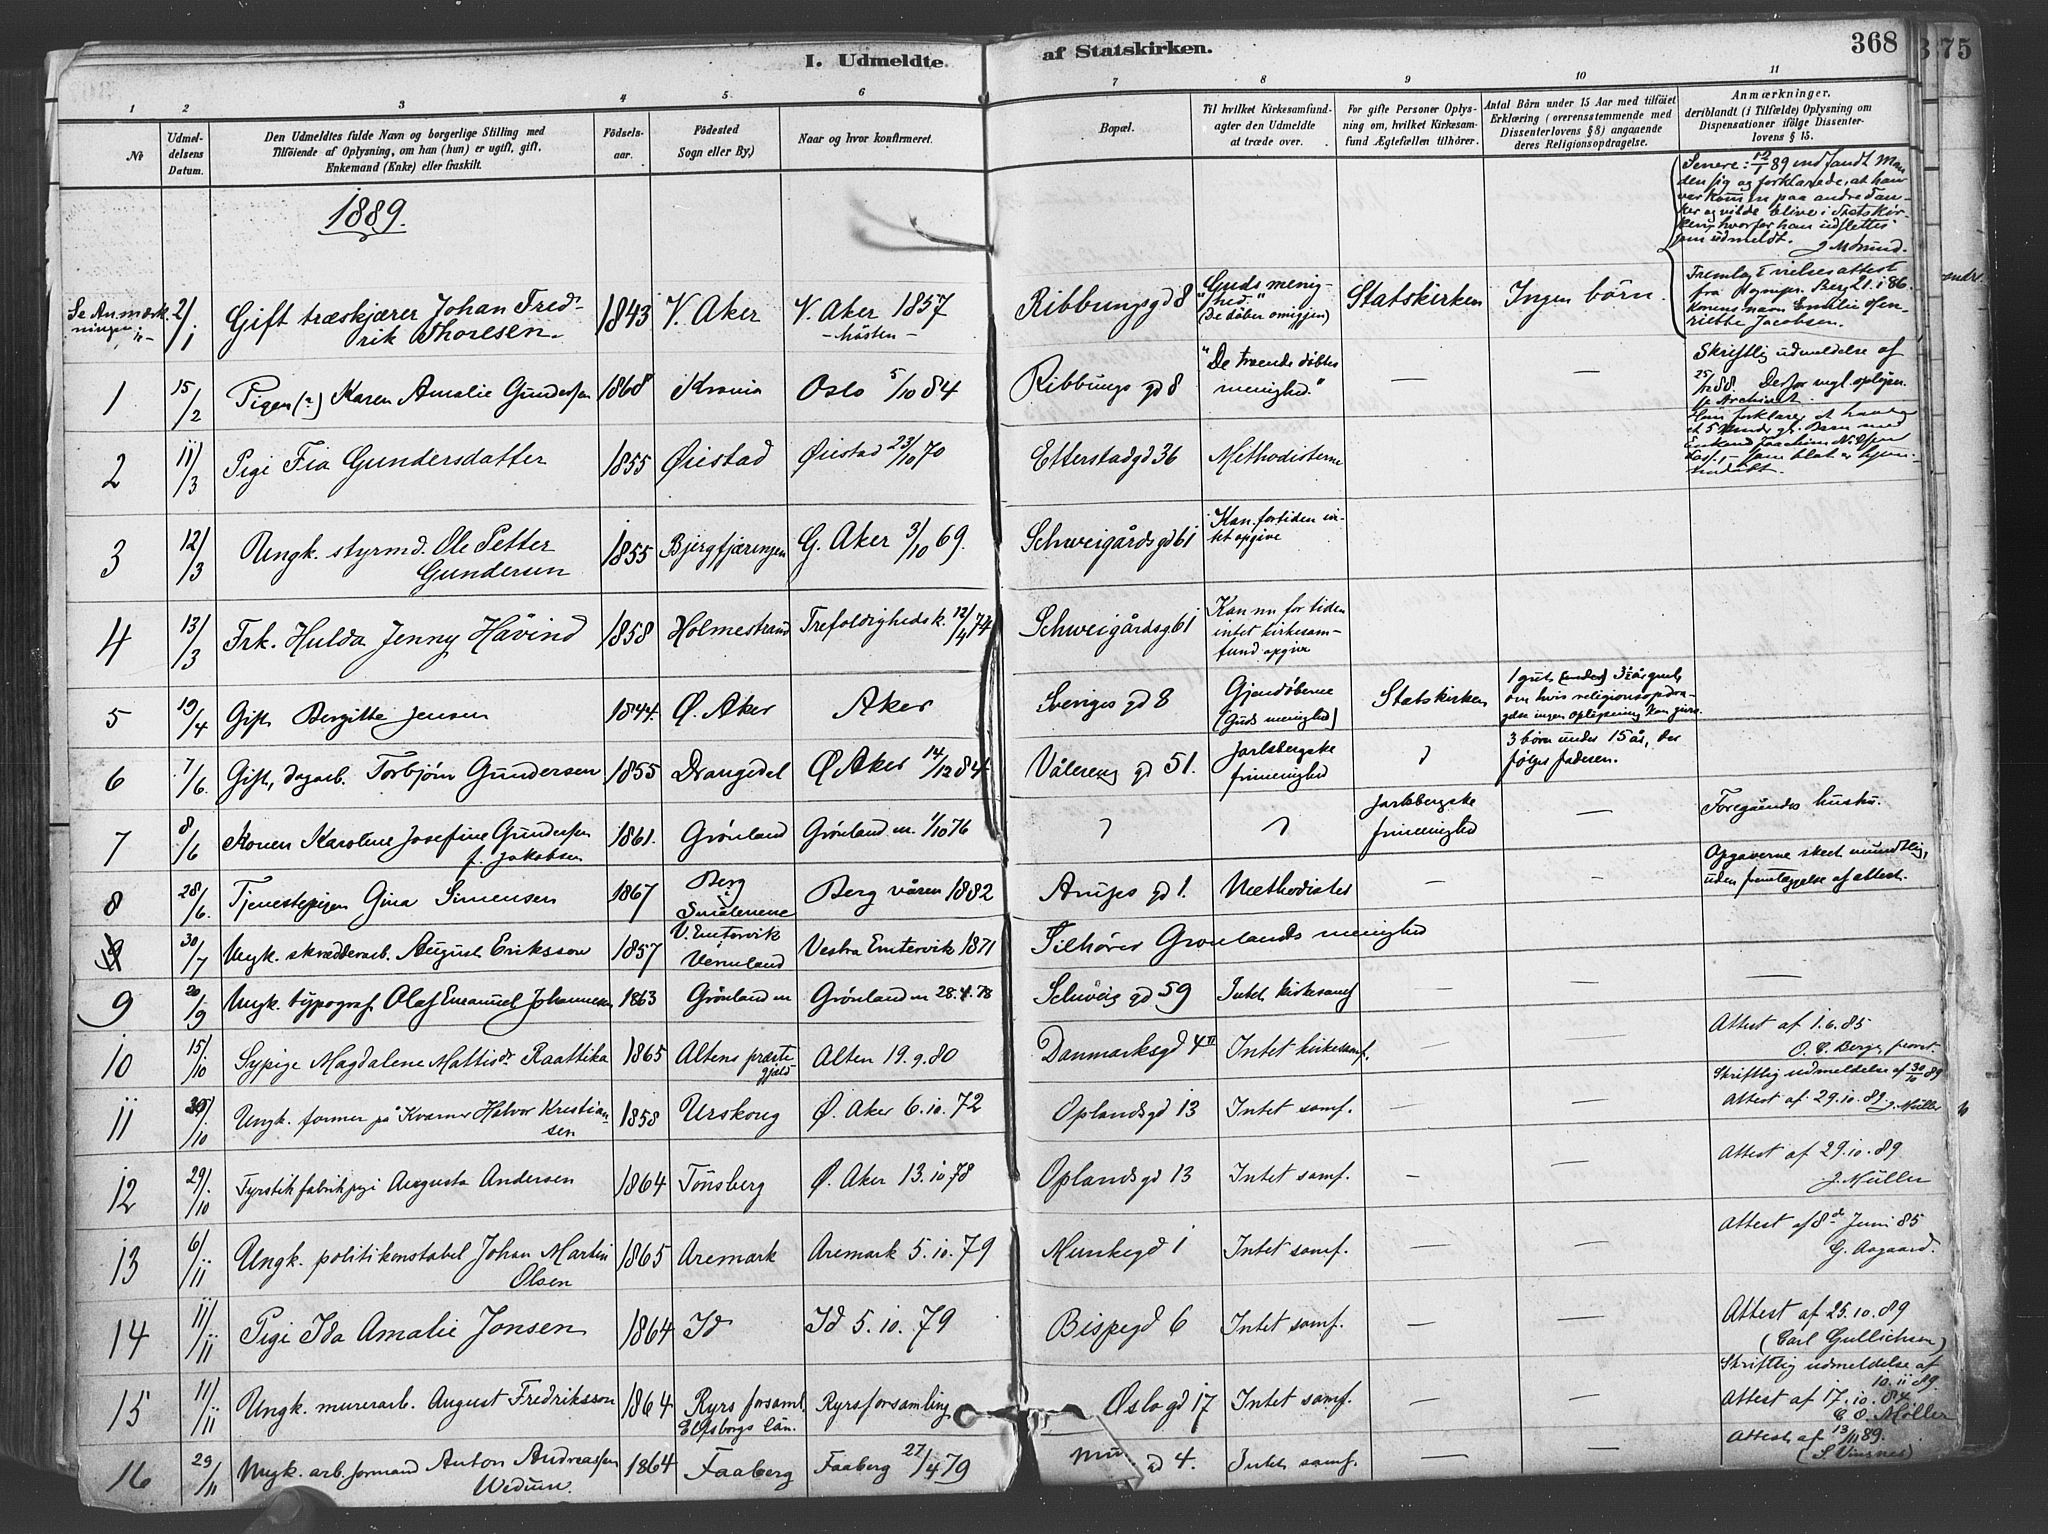 I. Udmeldte af Statskirken. 368
375
1 2 3 4 5 6 7 8 9 10 11
No
Udmel-
delsens
Datum.
Den Udmeldtes fulde Navn og borgerlige Stilling med
Tilføiende af Oplysning, om han (hun) er ugift, gift,
Enkemand (Enke) eller fraskilt.
Fødsels-
aar.
Fødested
Sogn eller By)
Naar og hvor konfirmeret.
Bopæl.
Til hvilket Kirkesamfund-
agter den Udmeldte
at træde over.
For gifte Personer Oplys-
ning om, hvilket Kirkesam-
fund Ægtefællen tilhører.
Antal Børn under 15 Aar med tilføiet
Erklæring (overensstemmende med
Dissenterlovens § 8) angaaende
deres Religionsopdragelse.
Anmærkninger,
deriblandt (i Tilfælde) Oplysning om
Dispensationer ifølge Dissenter-
lovens § 15.
1889.
Senere: 12/1 89 indfandt Man
den sig og forklarede, at han
var kommen paa andre Tan-
ker og vilde blive i Statskir-
ken, hvorfor han udslettes
som udmeldt.
Se Anmærk-
ningen
2/1 Gift træskjærer Johan Fred-
rik Thoresen. 1843 V. Aker V. Aker 1857
- høsten -
Ribbungsgd 8 "Guds menig-
hed."
(De døber omigjen) Statskirken Ingen børn.
Fremlag vielsesattest
fra Berg 21.1.86.
Konens navn Emilie Hen-
riette Jacobsen.
1 15/2 Pigen (?) Karen Amalie Gundersen 1868 Krania Oslo 5/10 84 Ribbungs gd 8 "De troende døbtes
menighed." — —
Skriftlig udmeldelse af
25/12 88. Derfor mgl. oplysn.
2 11/3 Pigi Fia Gundersdatter 1855 Øiestad Øiestad 23/10 70 Etterstadgd 36 Methodisterne
3 12/3 Ungk. styrmd. Ole Petter
Gundersen 1855 Bjergfjæringen G. Aker 3/10 69. Schweigårdsgd 61 Kan fortiden in-
tet opgive
4 13/3 Frk. Hulda Jenny Håvind 1858 Holmestrand Trefoldighedsk. 12/4 74 Schweigårdsg 61 Kan nu for tiden
intet kirkesam-
fund opgive
5 19/4 Gift Bergitte Jensen 1844. Ø. Aker Aker Sveriges gd 8 Gjendøberne
(Guds menighed) Statskirken
om hvis religionsopdra-
gelse ingen oplysning kan gives
6 7/6. Gift, dagarb. Torbjørn Gundersen 1855 Drangedal Ø. Aker 14/12 84. Vålereng gd 51. Jarlsbergske
frimenighed
3 børn under 15 år, der
følge faderen.
7 8/6 Konen Karoline Josefine Gundersen
f. Jakobsen 1861. Grønland Grønland m. 1/10 76 Jarlsbergske
frimenighed — Foregåendes hustru.
8 28/6. Tjenestepigen Gina Simensen 1867 Berg
i
Smålenene Berg våren 1882 Arups gd 1. Methodister — —
Opgaverne skeet mundtlig,
uden fremlæggelse af attest.
9 30/7 Ungk. skrædderarb. August Eriksson 1857 V. Emtervik
i
Vermland Vestra Emtervik 1871 Tilhører Grønlands menighed
9 20/9 Ungk. typograf Olaf Emanuel Johannesen 1863 Grønland m Grønland m 28.4.78 Schweig gd 59 Intet kirkesamf — — —
10 15/10 Sypige Magdalene Mattisdr Raattika 1865 Altens præste
gjæld Alten 19.9.80 Danmarksgd 4II Intet kirkesamf. — —
Attest af 1.6.85
O. C. Berge, provst.
Skriftlig udmeldelse af 30/10 89
11 30/10 Ungk. former på Kværner Halvor Kristian-
sen 1858 Urskoug Ø. Aker 6.10.72 Oplandsgd 13 Intet samf. — —
Attest af 29.10.89.
J. Müller
12 29/10 Fyrstikfabrikpigi Augusta Andersen 1864 Tønsberg Ø. Aker 13.10.78 Oplandsgd 13 Intet samf. — —
Attest af 29.10.89
J. Müller
13 6/11 Ungk. politikonstabel Johan Martin
Olsen 1865 Aremark Aremark 5.10.79 Munkegd 1 Intet samf. — —
Attest af 8de Juni 85
G. Aagaard.
14 11/11 Pigi Ida Amalie Jonsen 1864 Id Id 5.10.79 Bispegd 6 Intet samf. — —
Attest af 25.10.89
(Carl Gullichsen)
Skriftlig udmeldelse af
10.11.89.
15 11/11 Ungk. murerarb. August Fredriksson 1864 Ryrs forsaml.
Elfsborgs län. Ryrs forsamling Oslo gd 17 Intet samf. — —
Attest af 17.10.84
Møller
16 29/11 Ungk. arb. formand Anton Andreassen
Wedum. 1864 Faaberg Faaberg 27/4 79 gd 4. Intet samf. — —
Attest af 13/11 89.